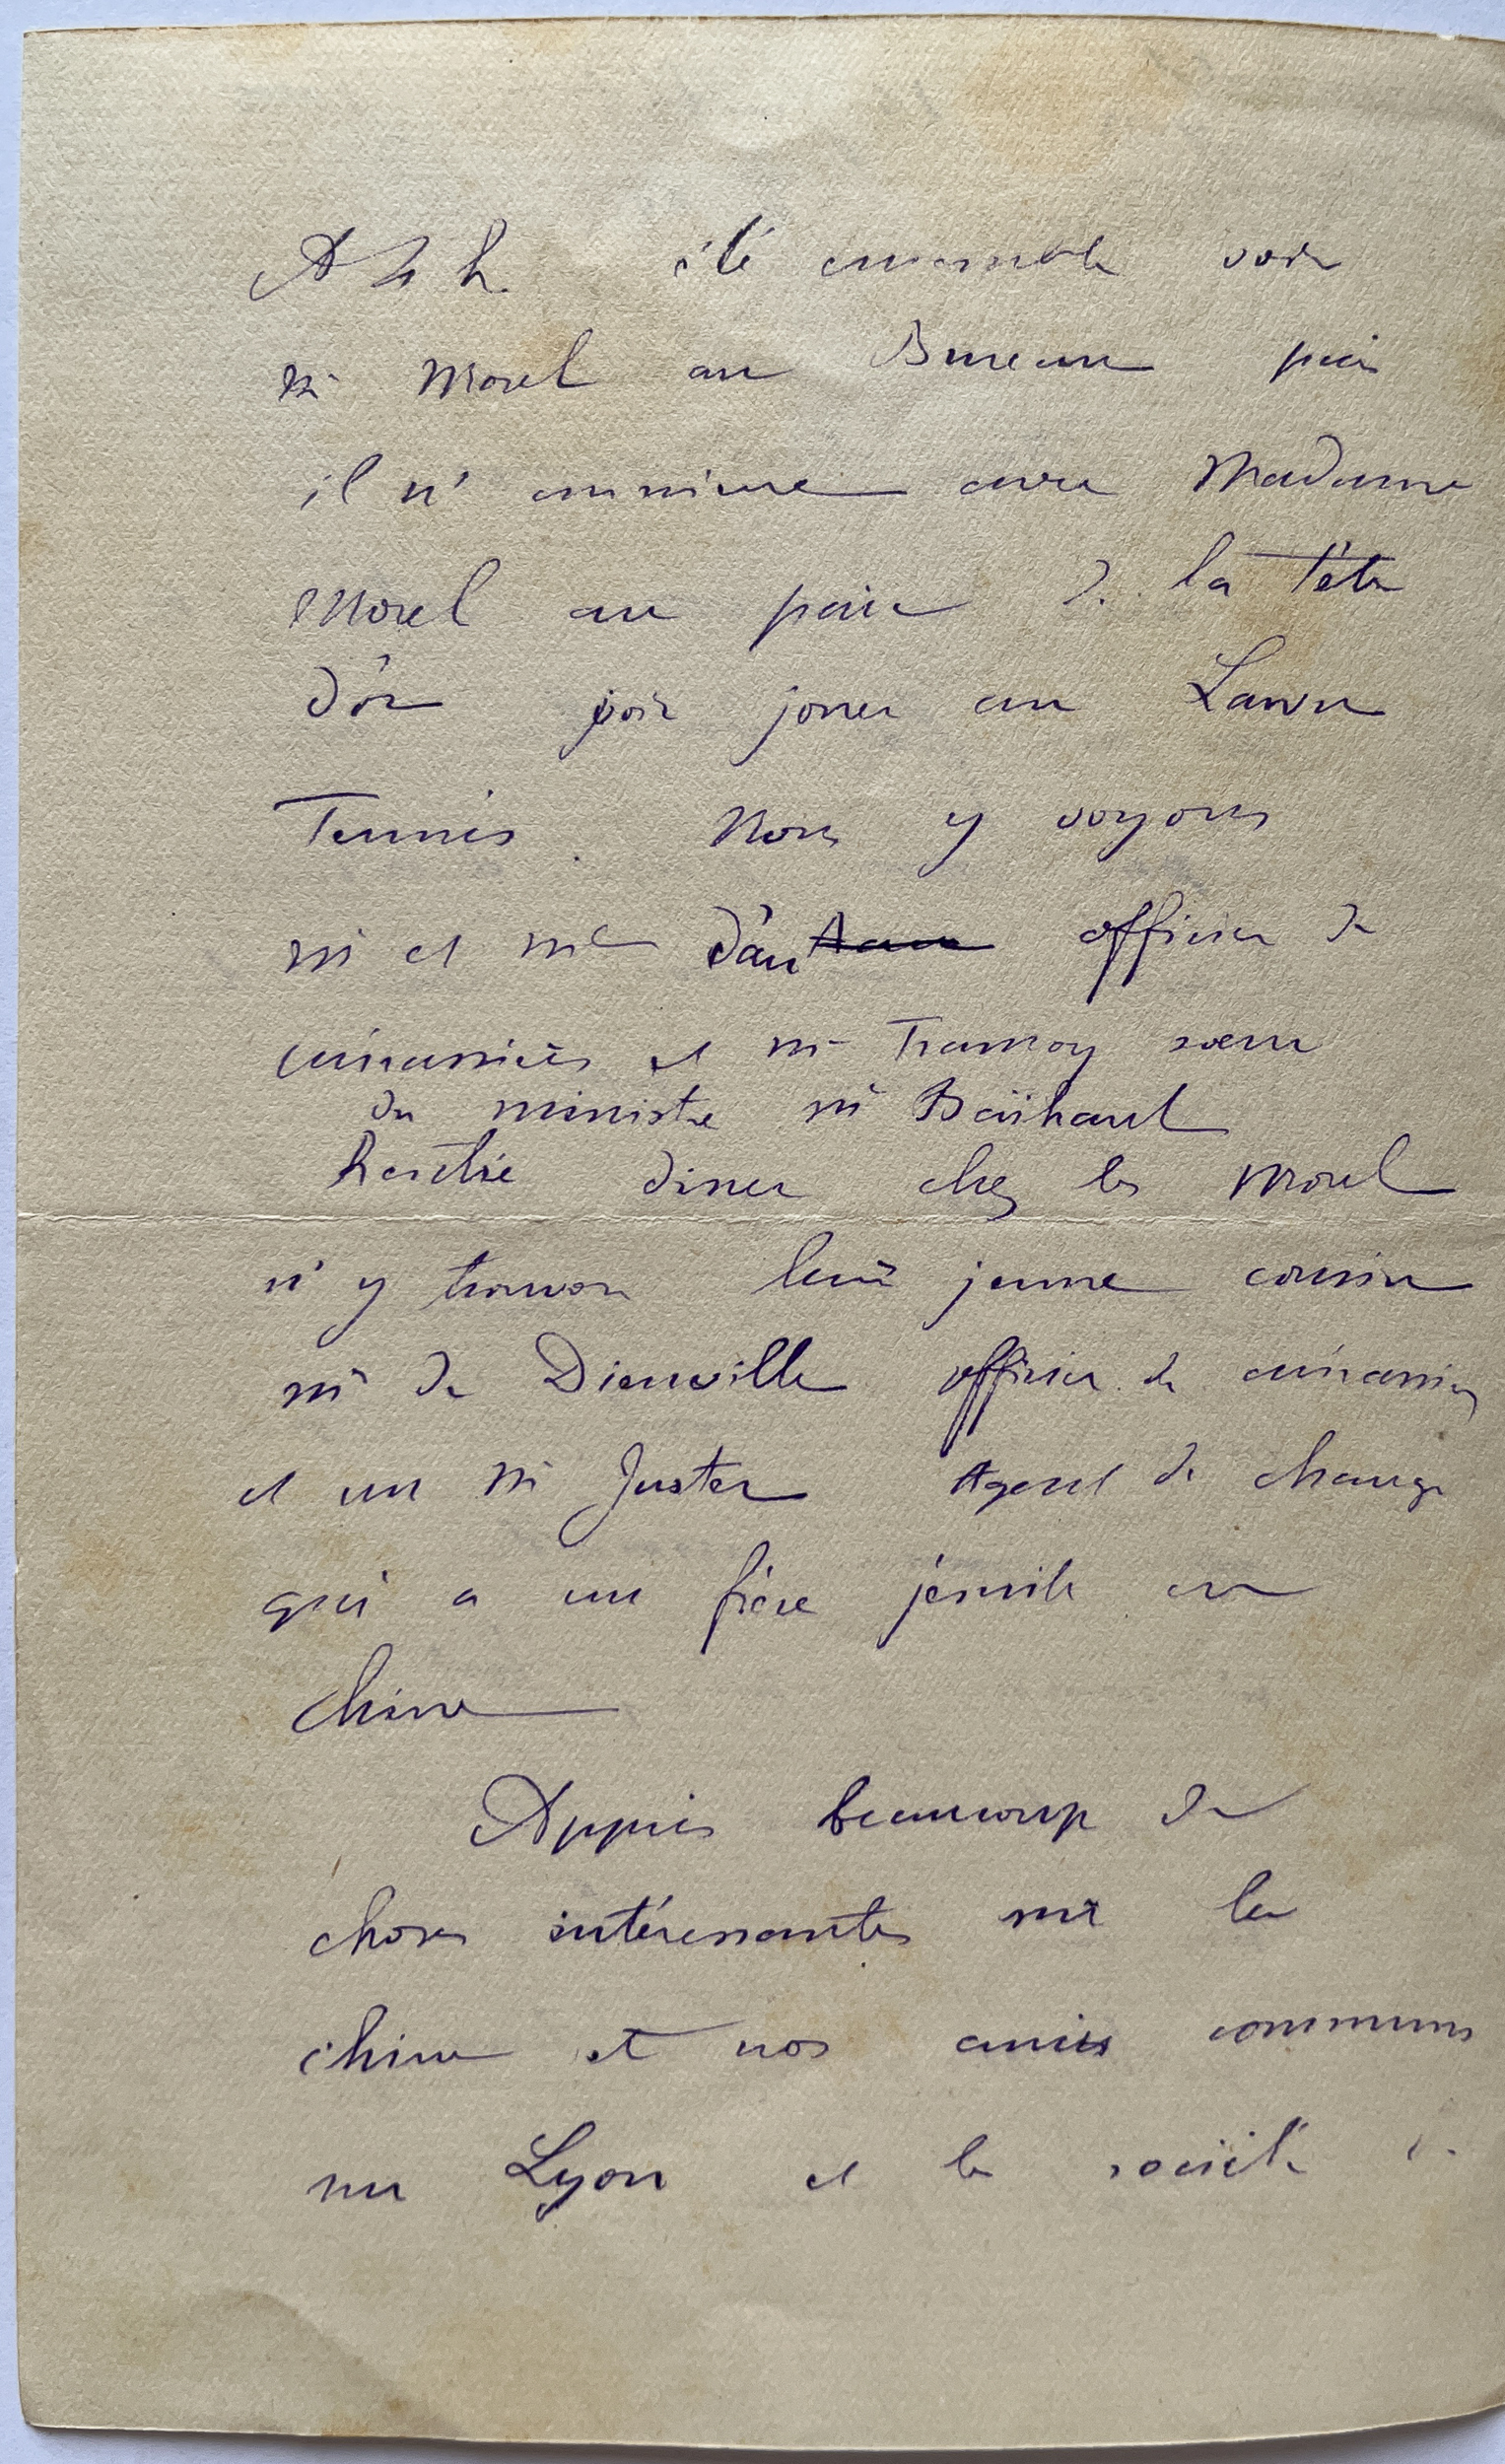 A 4 h. été ensuite voir
Mr Morel au Bureau puis
il m'emmène avec Madame
Morel au parc de la Tête
d'or voir jouer au Lawn
Tennis. Nous y voyons
Mr et Me d'Au officier de
cuirassiers et Me Tramoy sœur
du ministre Mr Baïhaut
Rentré diner chez les Morel
m'y trouvon leur jeune cousin
Mr de Dienville officier de cuirassiers
et un Mr Juster Agent de change
qui a un frère jésuite en
Chine
Appris beaucoup de
choses intéressantes sur la
chine et nos amis communs
sur Lyon et la société